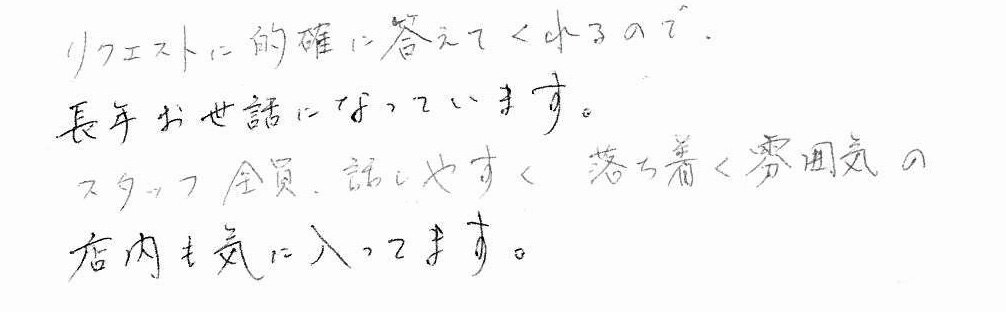 リクエストに的確に答えてくれるので、
長年お世話になっています。
スタッフ全員、話しやすく 落ち着く雰囲気の
店内も気に入ってます。